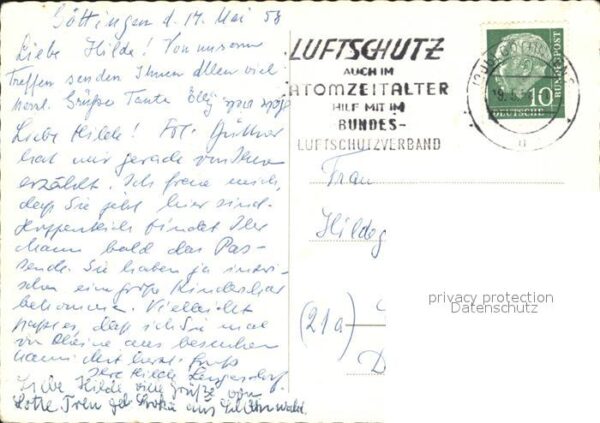 Göttingen d. 17. Mai 58
Liebe Hilde! Von unserem
Treffen senden Ihnen allen viel
herzl. Grüße Tante
Liebe Hilde! Frl. Güttner
hat mir gerade von Ihnen
erzählt. Ich freue mich,
daß Sie jetzt hier sind.
Hoffentlich findet Ihr
Mann bald das Pas-
sende. Sie haben ja inzwi-
schen eine große Kinderschar
bekommen. Vielleicht
paßt es, daß ich Sie mal
von Rheine aus besuchen
kann. herzl. Gruß
Ihre Hilde
Liebe Hilde viele Grüße von
Lotte geb. aus
LUFTSCHUTZ
AUCH IM
ATOMZEITALTER
HILF MIT IM
BUNDES-
LUFTSCHUTZVERBAND
10
DEUTSCHE
BUNDESPOST
Frau
Hildeg
(21a)
D
privacy protection
Datenschutz